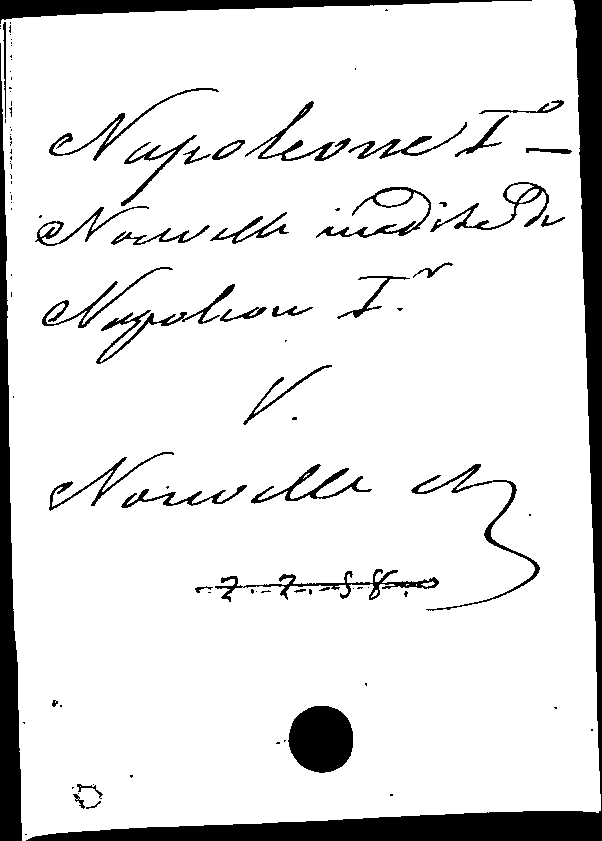 Napoleone I° —
Nouvelle inedite de
Napoleon I.r
V.
Nouvelle &
2.2.58.